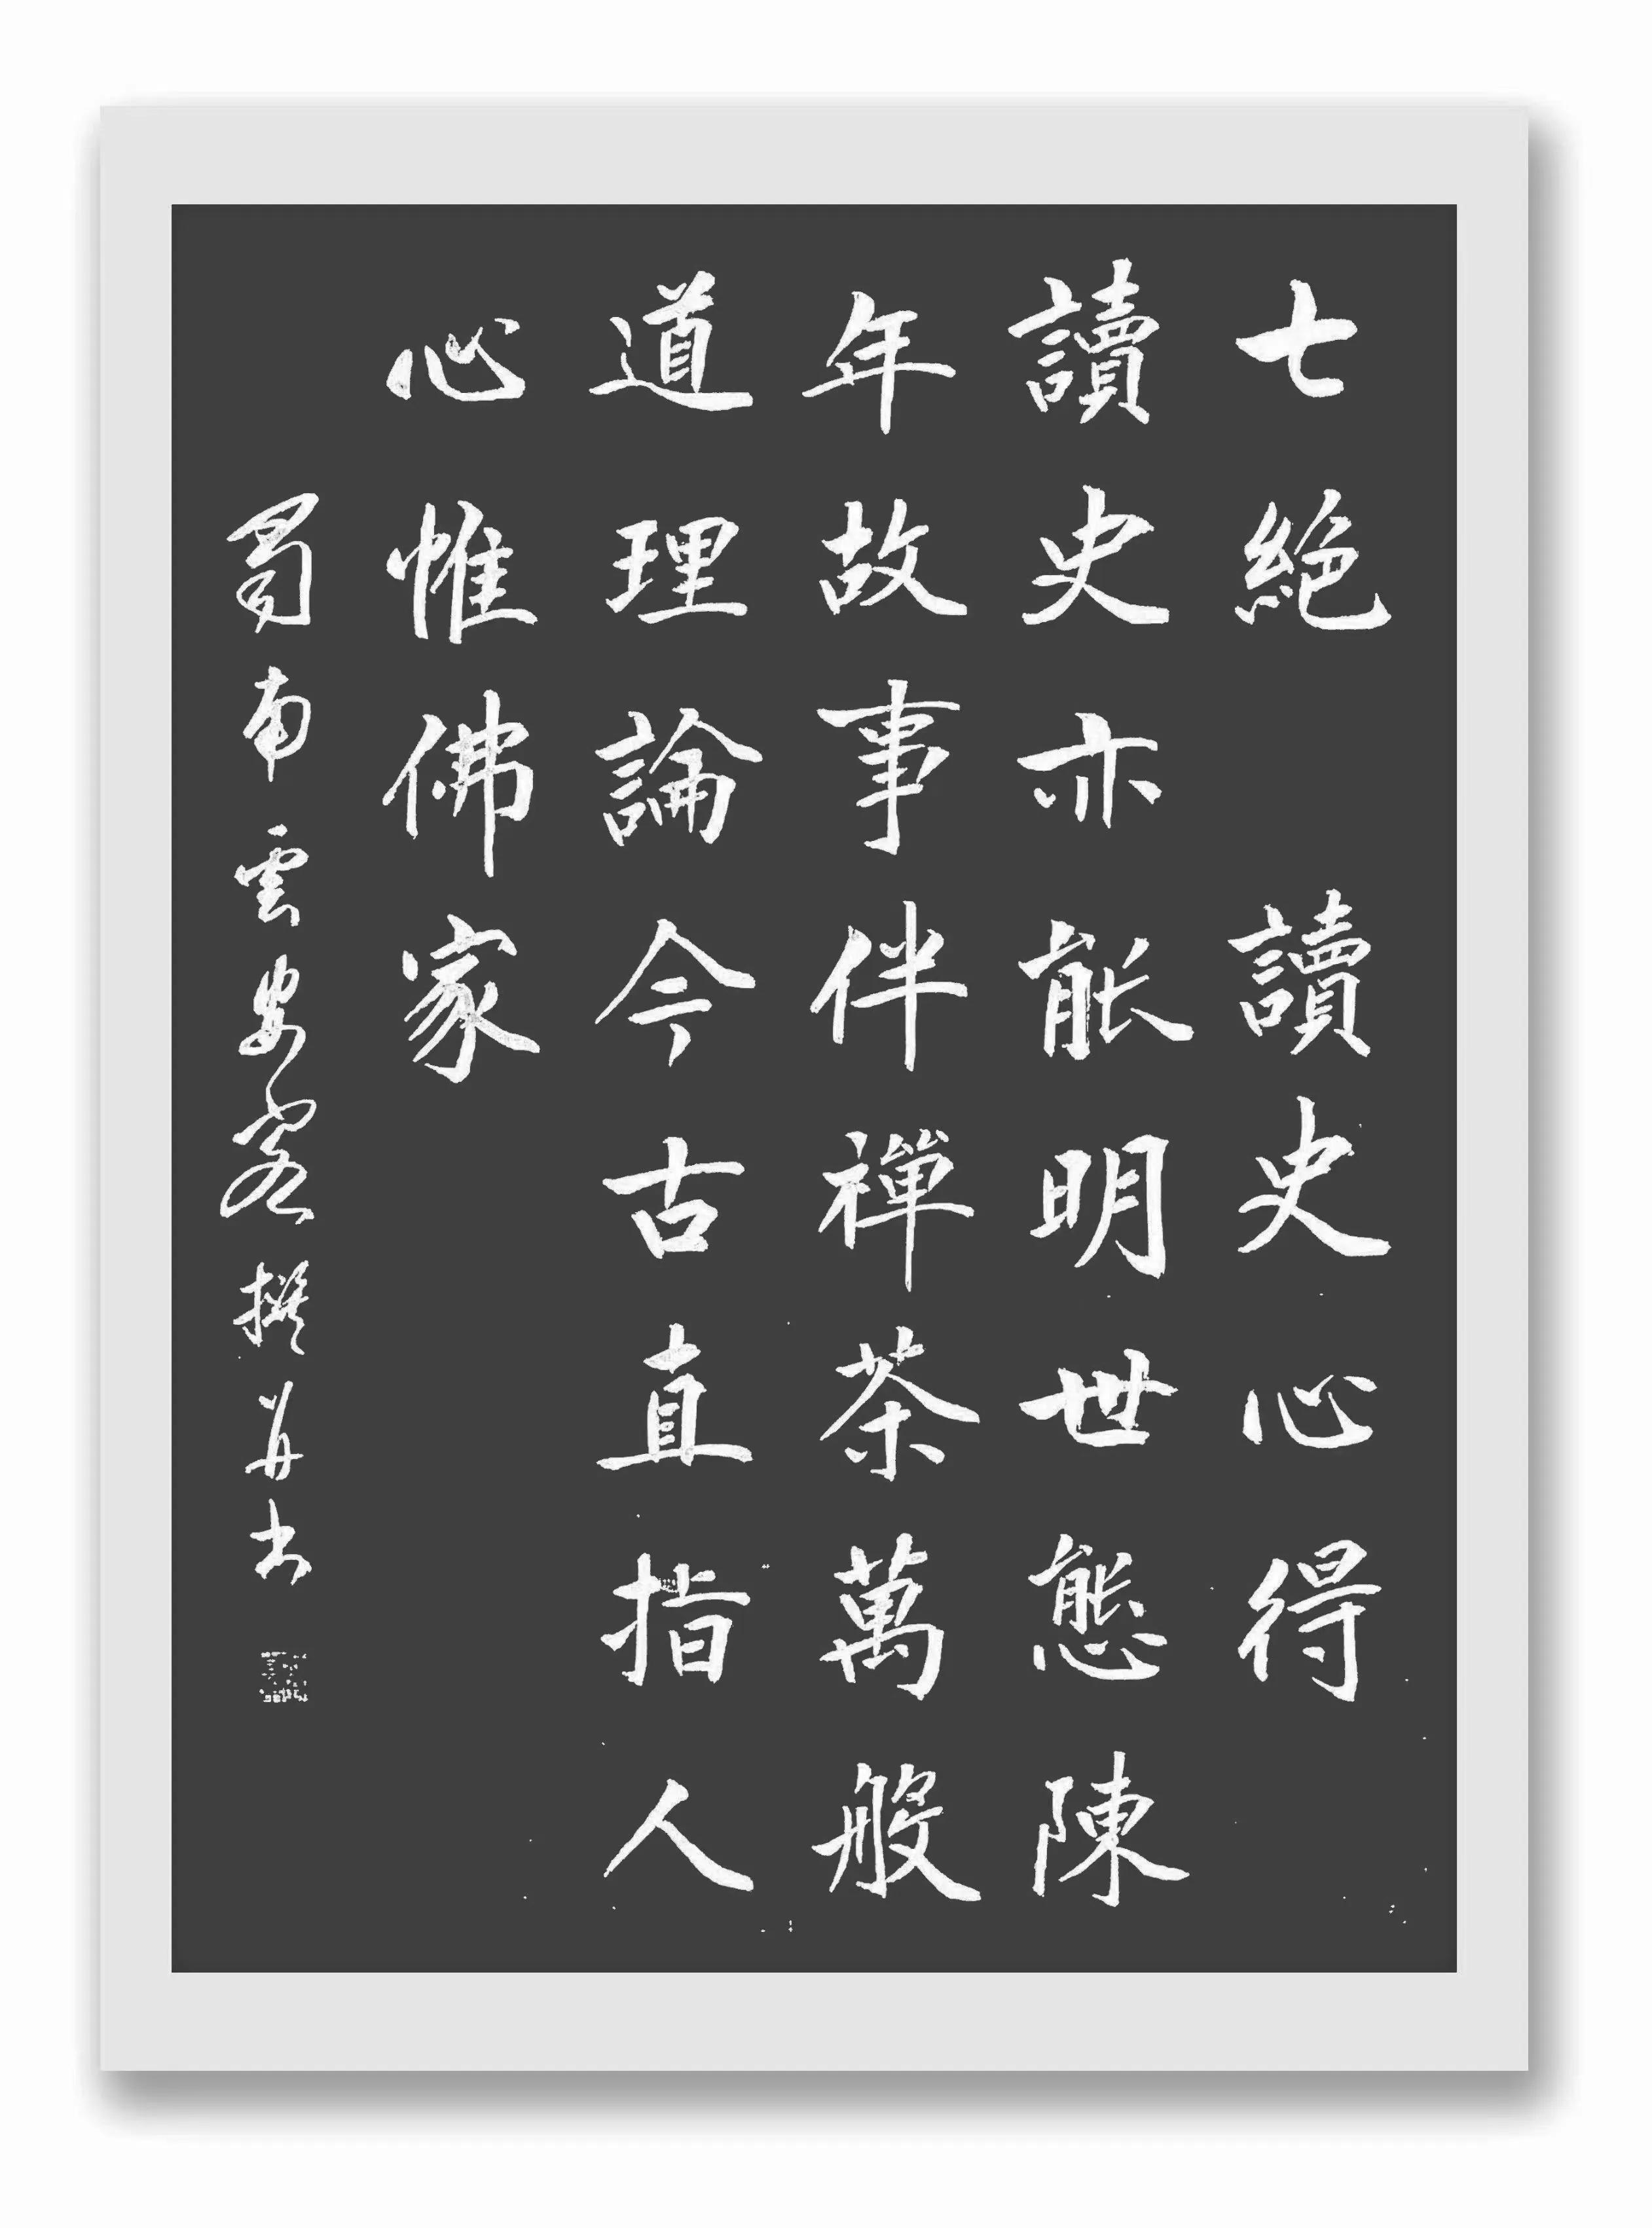 七絕 讀史心得
讀史亦能明世態陳
年故事伴禪茶萬般
道理論今古直指人
心惟佛家
蜀南雲安客撰并書